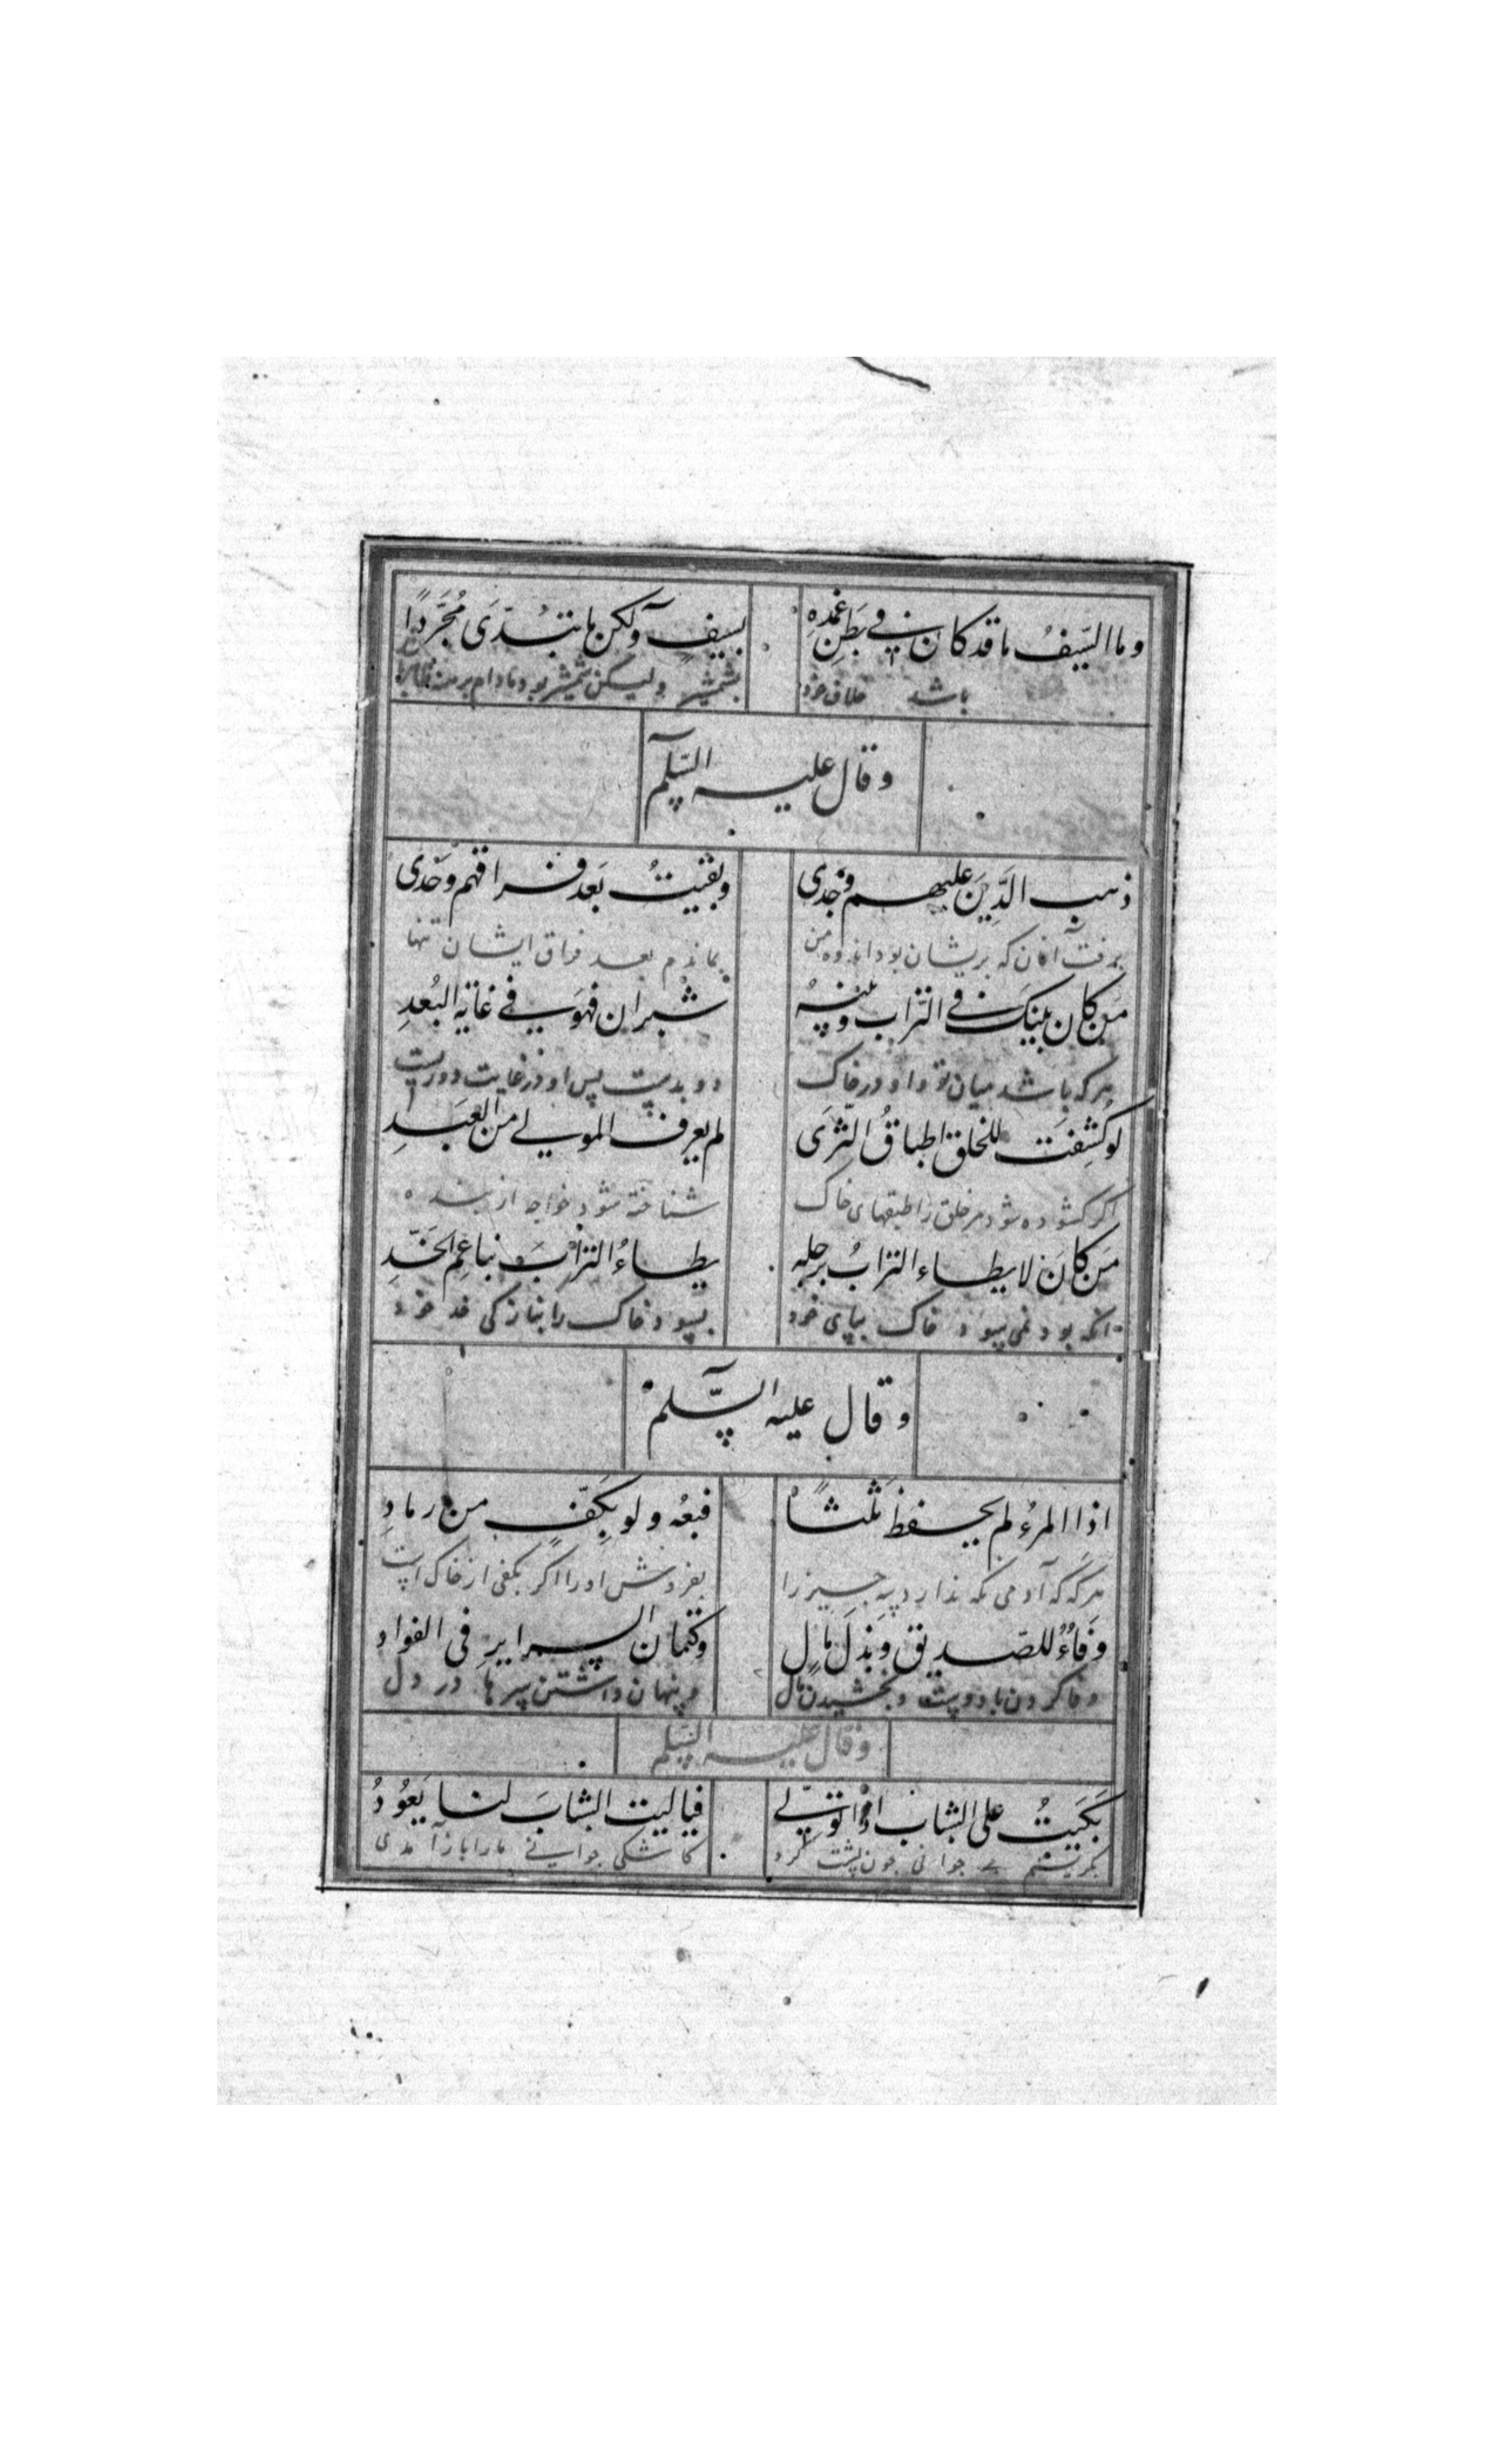 وما السَّيفُ ما قد كان في بَطنِ غِمدِهِ بسيفٍ ولكن ما تبَدَّى مُجَرَّدًا
باشد غلاف خود بشمشیر ولیکن شمشیر بود مادام برهنه
وقال علیه السّلم
ذهب الَّذِینَ علیهم وَجْدی وبقیتُ بَعدَ فراقهم وَحْدی
برفت آنان که بریشان بود اندوه من بماندم بعد فراق ایشان تنها
مَن كان بینَكَ في التُّراب وبینهُ شبران فهوَ في غایةِ البُعدِ
هرکه باشد میان تو و او در خاک دو بدست پس او در غایت دوریست
لو كُشِفت للخلق اطباقُ الثَّرَى لم یعرف المولی من العَبدِ
اگر کشوده شود مر خلق را طبقهای خاک شناخته نشود خواجه از بنده
مَن كانَ لا یطاء الترابُ برجله یطاءُ الترابَ بناعِمِ الخَدِّ
آنکه بود نمی سپود خاک بپای خود بسپود خاک را بنازکی خد خود
وقال علیه السَّلم
اذا المرءُ لم یحفظ ثلثًا فبعُه ولو بِكَفٍّ من رمادِ
هرکه که آدمی نگه ندارد سه چیز را بفروش او را اگر بکفی از خاک است
وَفاءٌ للصّدیق وَبَذلَ مالٍ وكتمان السرایرِ فی الفواد
وفا کردن با دوست و بخشیدن مال و پنهان داشتن سرها در دل
وقال علیه السّلم
بَكَیتُ علی الشاب اذا تولّی فیالیت الشابَ لنا یَعُودُ
بگریستم بر جوانی چون پشت کرد کاشکی جوانی ما را باز آمدی